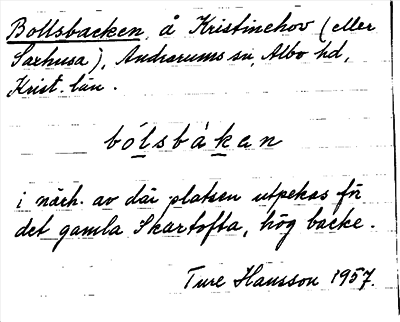 Bollsbacken, å Kristinehov (eller
Saxhusa), Andrarums sn, Albo hd,
Krist. län.
bólsbàkan
i närh. av där platsen utpekas för
det gamla Skartofta, hög backe.
Ture Hansson 1957.